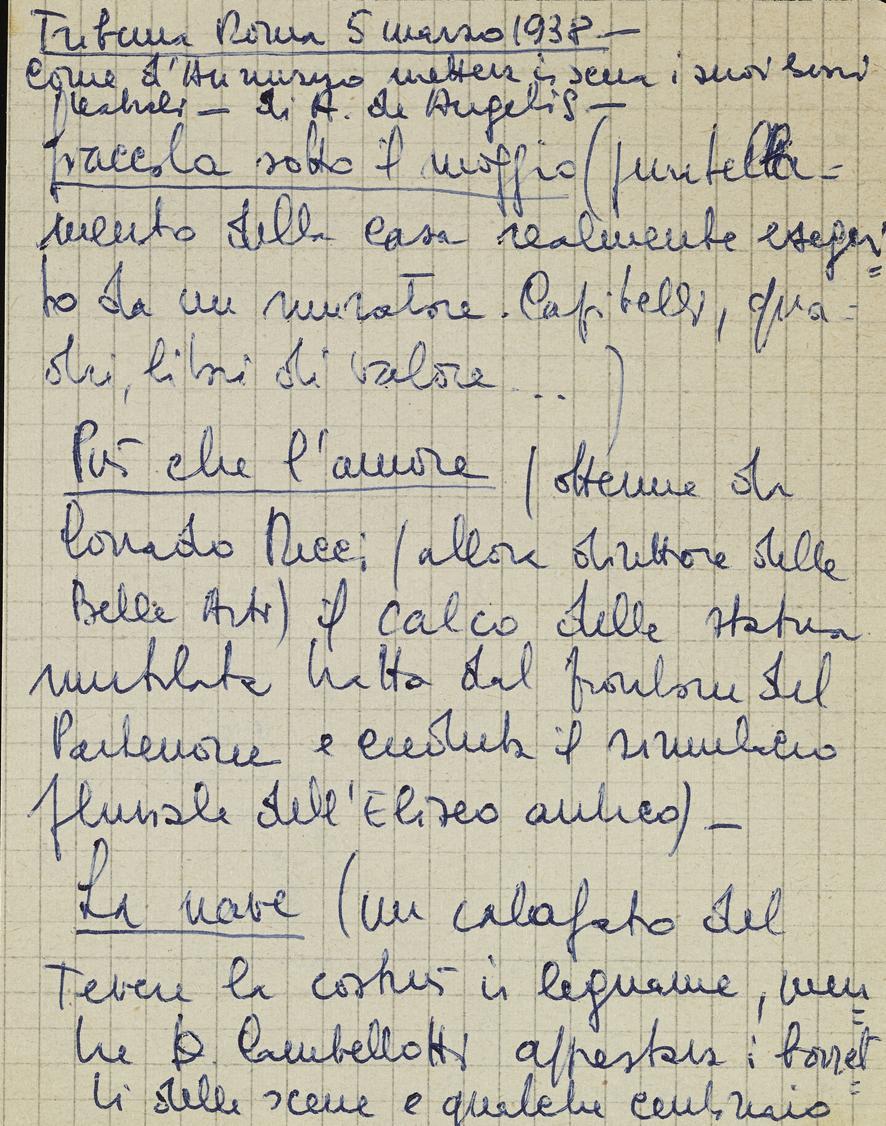 Tribuna Roma 5 marzo 1938 —
Come d'Annunzio metteva in scena i suoi lavori
teatrali — di A. de Angelis —
fiaccola sotto il moggio (puntella-
mento della casa realmente esegui=
to da un muratore. Capitelli, qua-
dri, libri di valore ... )
Più che l'amore (ottenne da
Corrado Ricci (allora direttore delle
Belle Arti) il calco della statua
mutilata tratta dal frontone del
Partenone e creduta il simulacro
fluviale dell'Eliseo antico) —
La nave (un calafato del
Tevere la costruì in legname, men=
tre D. Cambellotti apprestava i bozzet=
ti delle scene e qualche centinaio